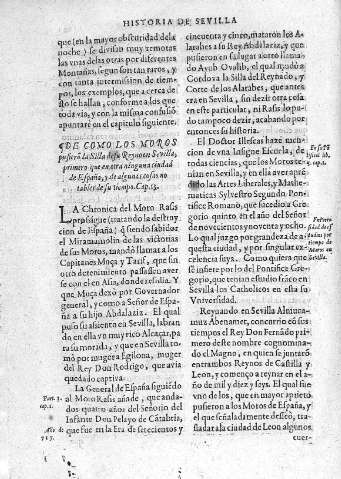 HISTORIA DE SEVILLA
que (en la mayor obscuridad dela
noche) se divisan muy remotas
las unas delas otras por diferentes
Montañas, segun son tan raros, y
con tanta intermission de tiem-
pos, los exemplos, que a cerca de
esto se hallan, conforme a los que
todavia, y con la misma confusiō
apuntaré en el capitulo siguiente.
DE COMO LOS MOROS
pusierō la Silla de su Reyno en Sevilla,
primero que en otra ninguna ciudad
de España, y de algunas cosas no
tables de su tiempo. Cap. 13.
LA Chronica del Moro Rasis
prosigue (tratando la destruy
cion de España) q̃ siendo sabidor
el Miramamolin de las victorias
de sus Moros, mandó llamar a los
Capitanes Moça y Tarif, que sin
otro detenimiento passassen aver
se con el en Asia, donde residia. Y
que Moça dexó por Governador
general, y como a Señor de Espa-
ña a su hijo Abdalaziz. El qual
puso su asiento en Sevilla, labran
do en ella vn muy rico Alcaçar, pa
ra su morada, y que en Sevilla to-
mó por muger a Egilona, muger
del Rey Don Rodrigo, que avia
quedado captiva.
La General de España siguiēdo
al Moro Rasis añade, que an-
dados quatro años del Señorio del
Infante Don Pelayo de Cātabria,
que fue en la Era de setecientos y
Part. 3.
cap. 1.
Año de
717.
cincuenta y cinco, mataron los A-
larabes a su Rey Abdilaziz, y que
pusieron en su lugar a otro llama-
do Ayub
Cordova la Silla del Reynado, y
Corte de los Alarabes, que antes
era en Sevilla, sin dezir otra cosa
en este particular, ni Rasis lo pu-
do tan poco dezir, acabando por
entonces su historia.
El Doctor Illescas hazé men-
cion de vna Insigne Escuela, de
todas ciencias, que los Moros te-
nian en Sevilla, y en ella apren-
dio las Artes Liberales, y Mathe-
maticas Sylvestro Segundo, Pon-
tifice Romano, que sucedio a Gre-
gorio quinto en el año del Señor
de novecientos y noventa y ocho.
Lo qual juzgo por grandeza de a-
questa ciudad, y por singular ex-
celencia suya. Como quiera que
se infiere por lo del Pontifice Gre-
gorio, que tenian estrada en Sevi-
lla los Catholicos en esta su
Vniversidad.
Reynando en Sevilla Almuca-
mus Abenamet, concurrió en sus
tiempos el Rey Don Fernādo pri-
mero deste nombre cognomina-
do el Magno, en quien se juntaró
entrambos Reynos de Castilla y
Leon, y començo a reynar en el a-
ño de mil y diez y seys. El qual fue
vno de los, que en mayor aprieto
pusieron a los Moros de España, y
el que señaladamente desseó, tras-
ladar a la ciudad de Leon algunos
cuer-
cap. 2.
Sevilla.